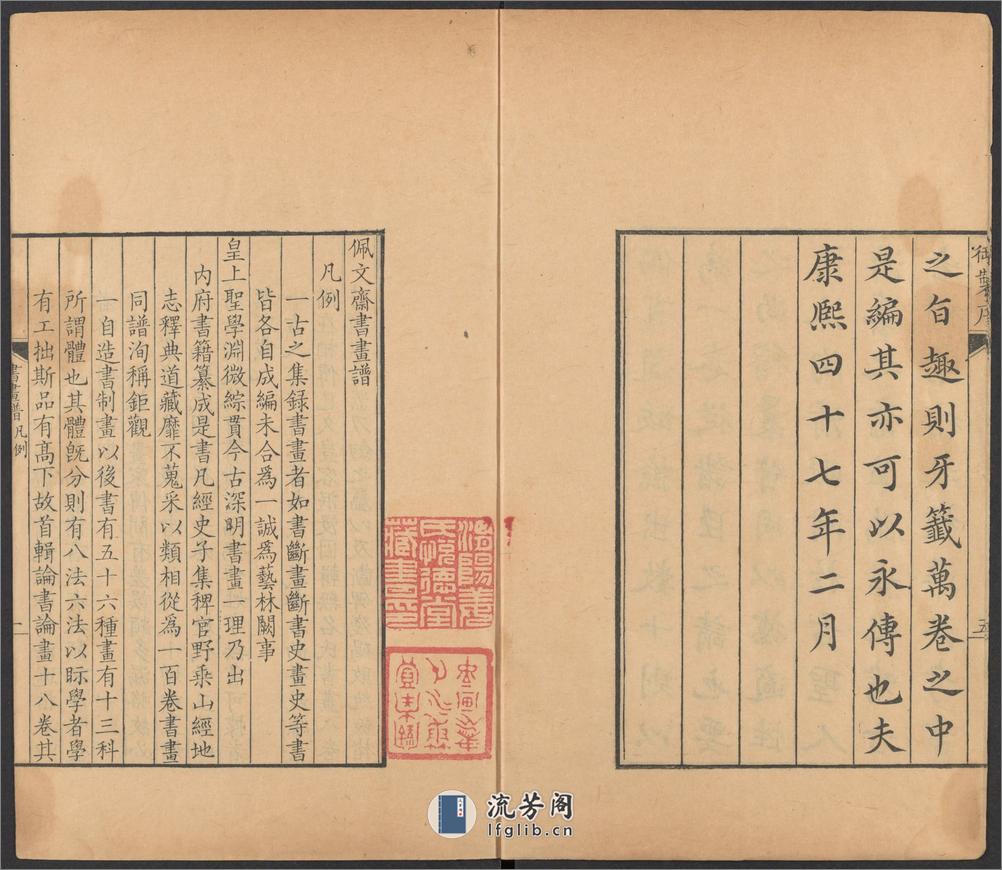 御製序
之旨趣則牙籤萬卷之中
是編其亦可以永傳也夫
康熙四十七年二月
五
佩文齋書畫譜
凡例
一古之集錄書畫者如書斷畫斷書史畫史等書
皆各自成編未合爲一誠爲藝林闕事
皇上聖學淵微綜貫今古深明書畫一理乃出
內府書籍纂成是書凡經史子集稗官野乘山經地
志釋典道藏靡不蒐采以類相從爲一百卷書畫
同譜洵稱鉅觀
一自造書制畫以後書有五十六種畫有十三科
所謂體也其體既分則有八法六法以眎學者學
有工拙斯品有高下故首輯論書論畫十八卷其
書畫譜凡例
一
氏悅德堂
藏書之印
流芳阁
lfglib.cn